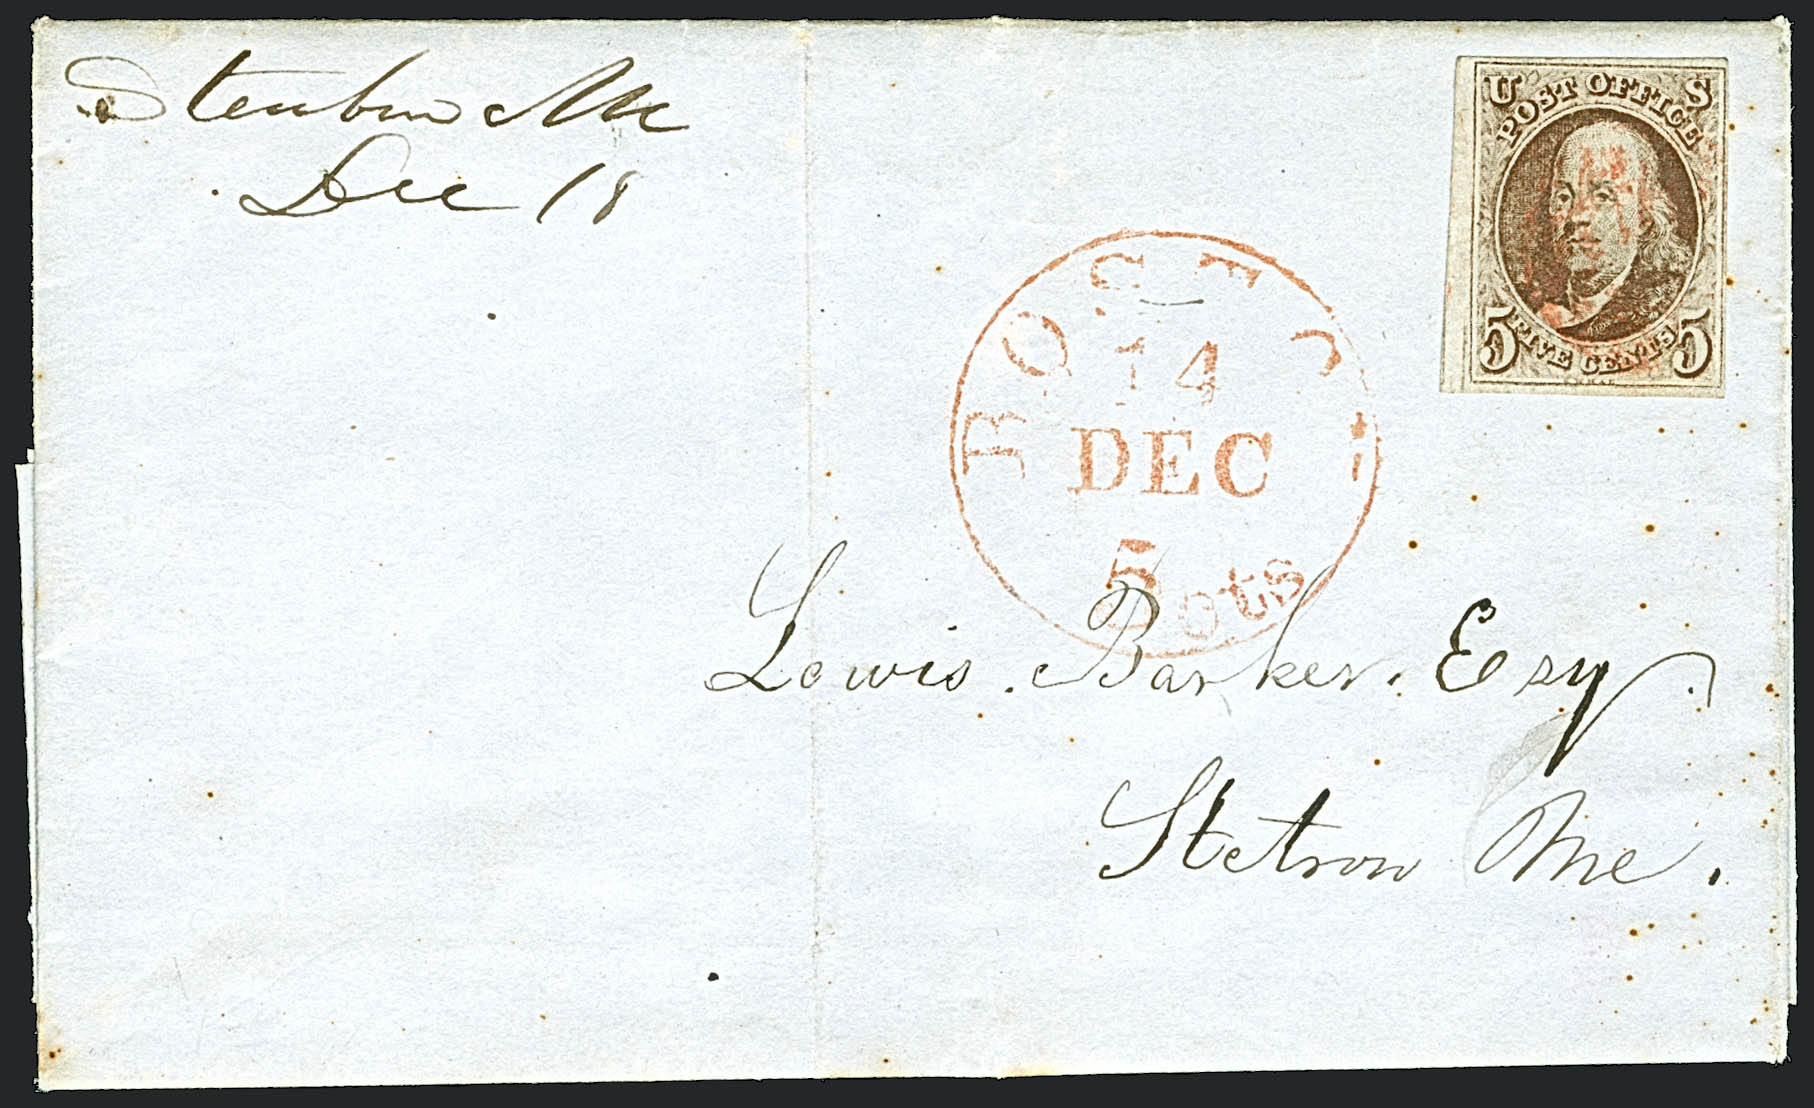 Steuben Me
Dec 18
U S
POST OFFICE
5 FIVE CENTS 5
BOSTON
14
DEC
5 cts
Lewis Barker. Esq
Stetson Me.